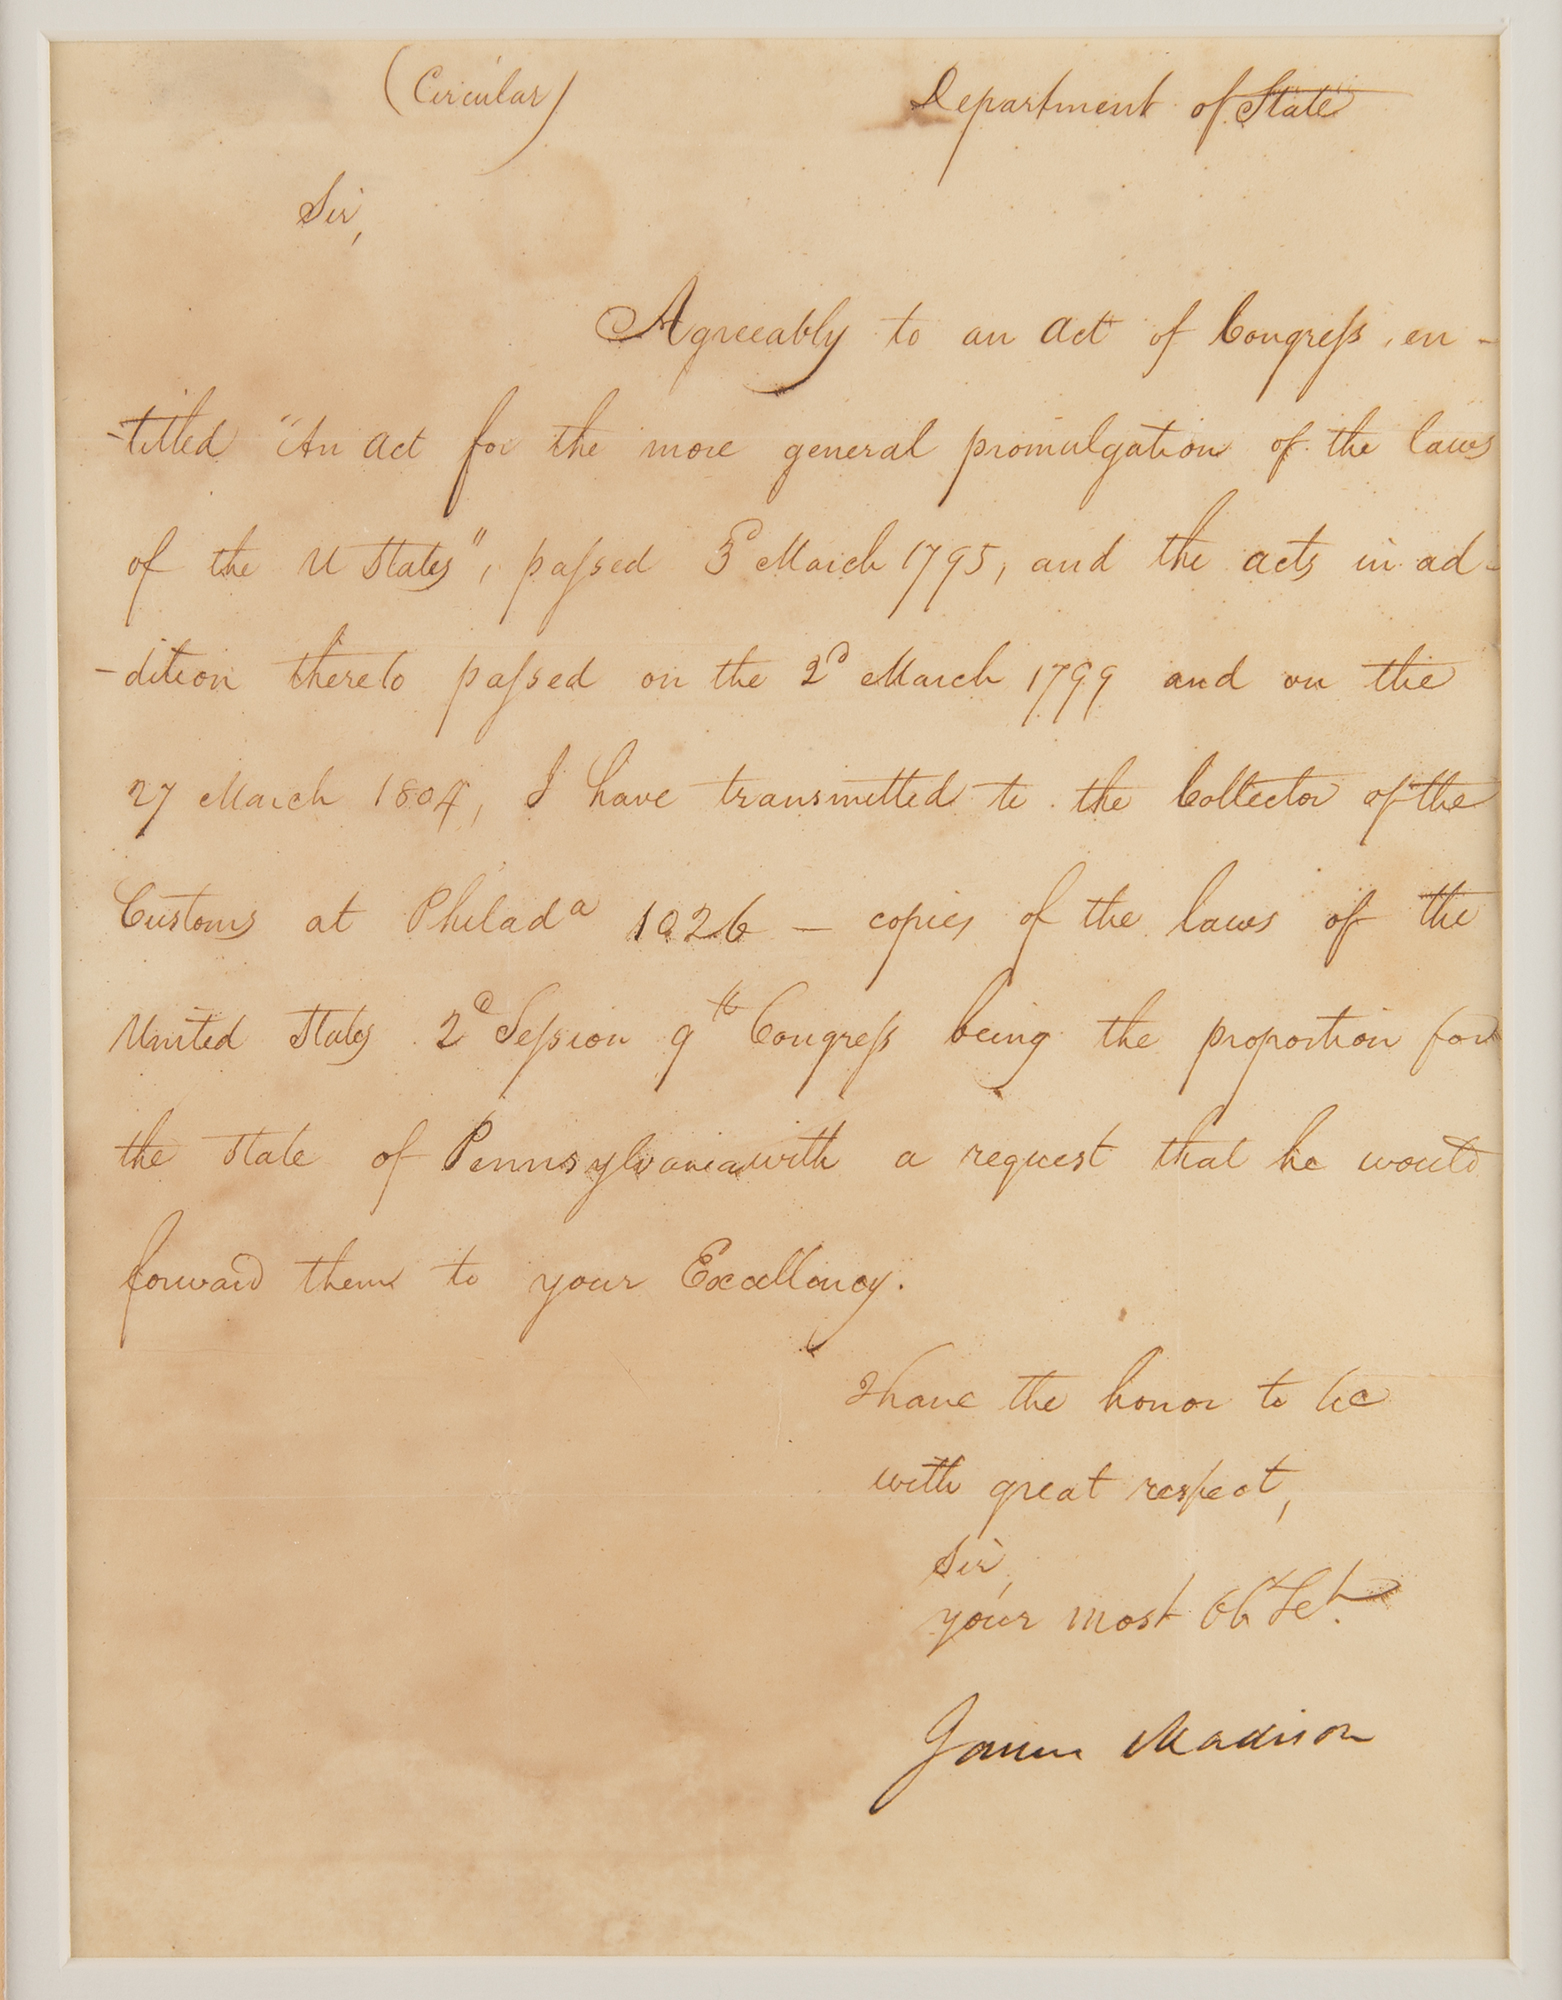 (Circular) Department of State
Sir,
Agreeably to an act of Congress, en-
-titled "An act for the more general promulgation of the laws
of the U States", passed 3d March 1795, and the acts in ad-
-dition thereto passed on the 2d March 1799 and on the
27 March 1804, I have transmitted to the Collector of the
Customs at Philada 1026 — copies of the laws of the
United States 2d Session 9th Congress being the proportion for
the State of Pennsylvania with a request that he would
forward them to your Excellency.
I have the honor to be
with great respect,
Sir,
your most Ob Set.
James Madison